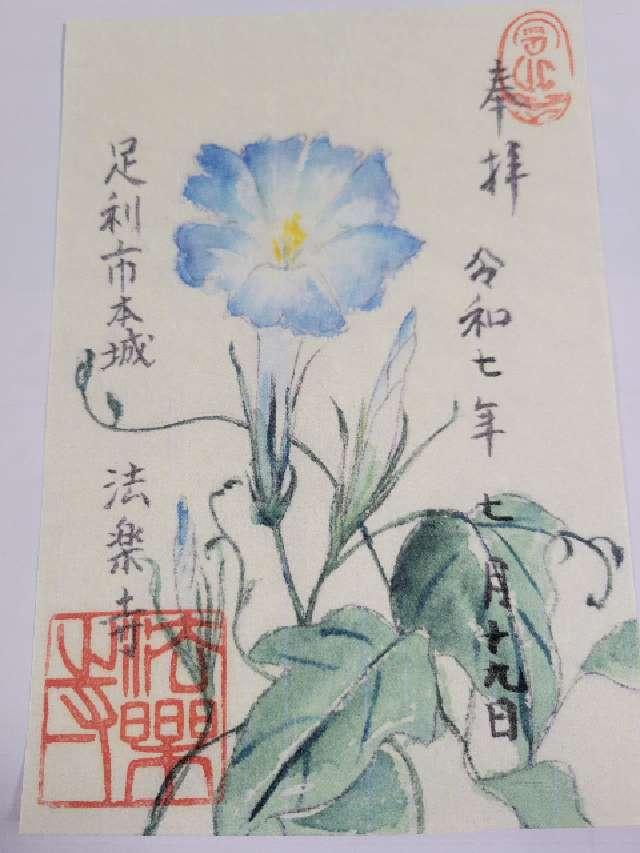 奉拝
令和七年 七月十九日
足利市本城 法楽寺
法樂寺